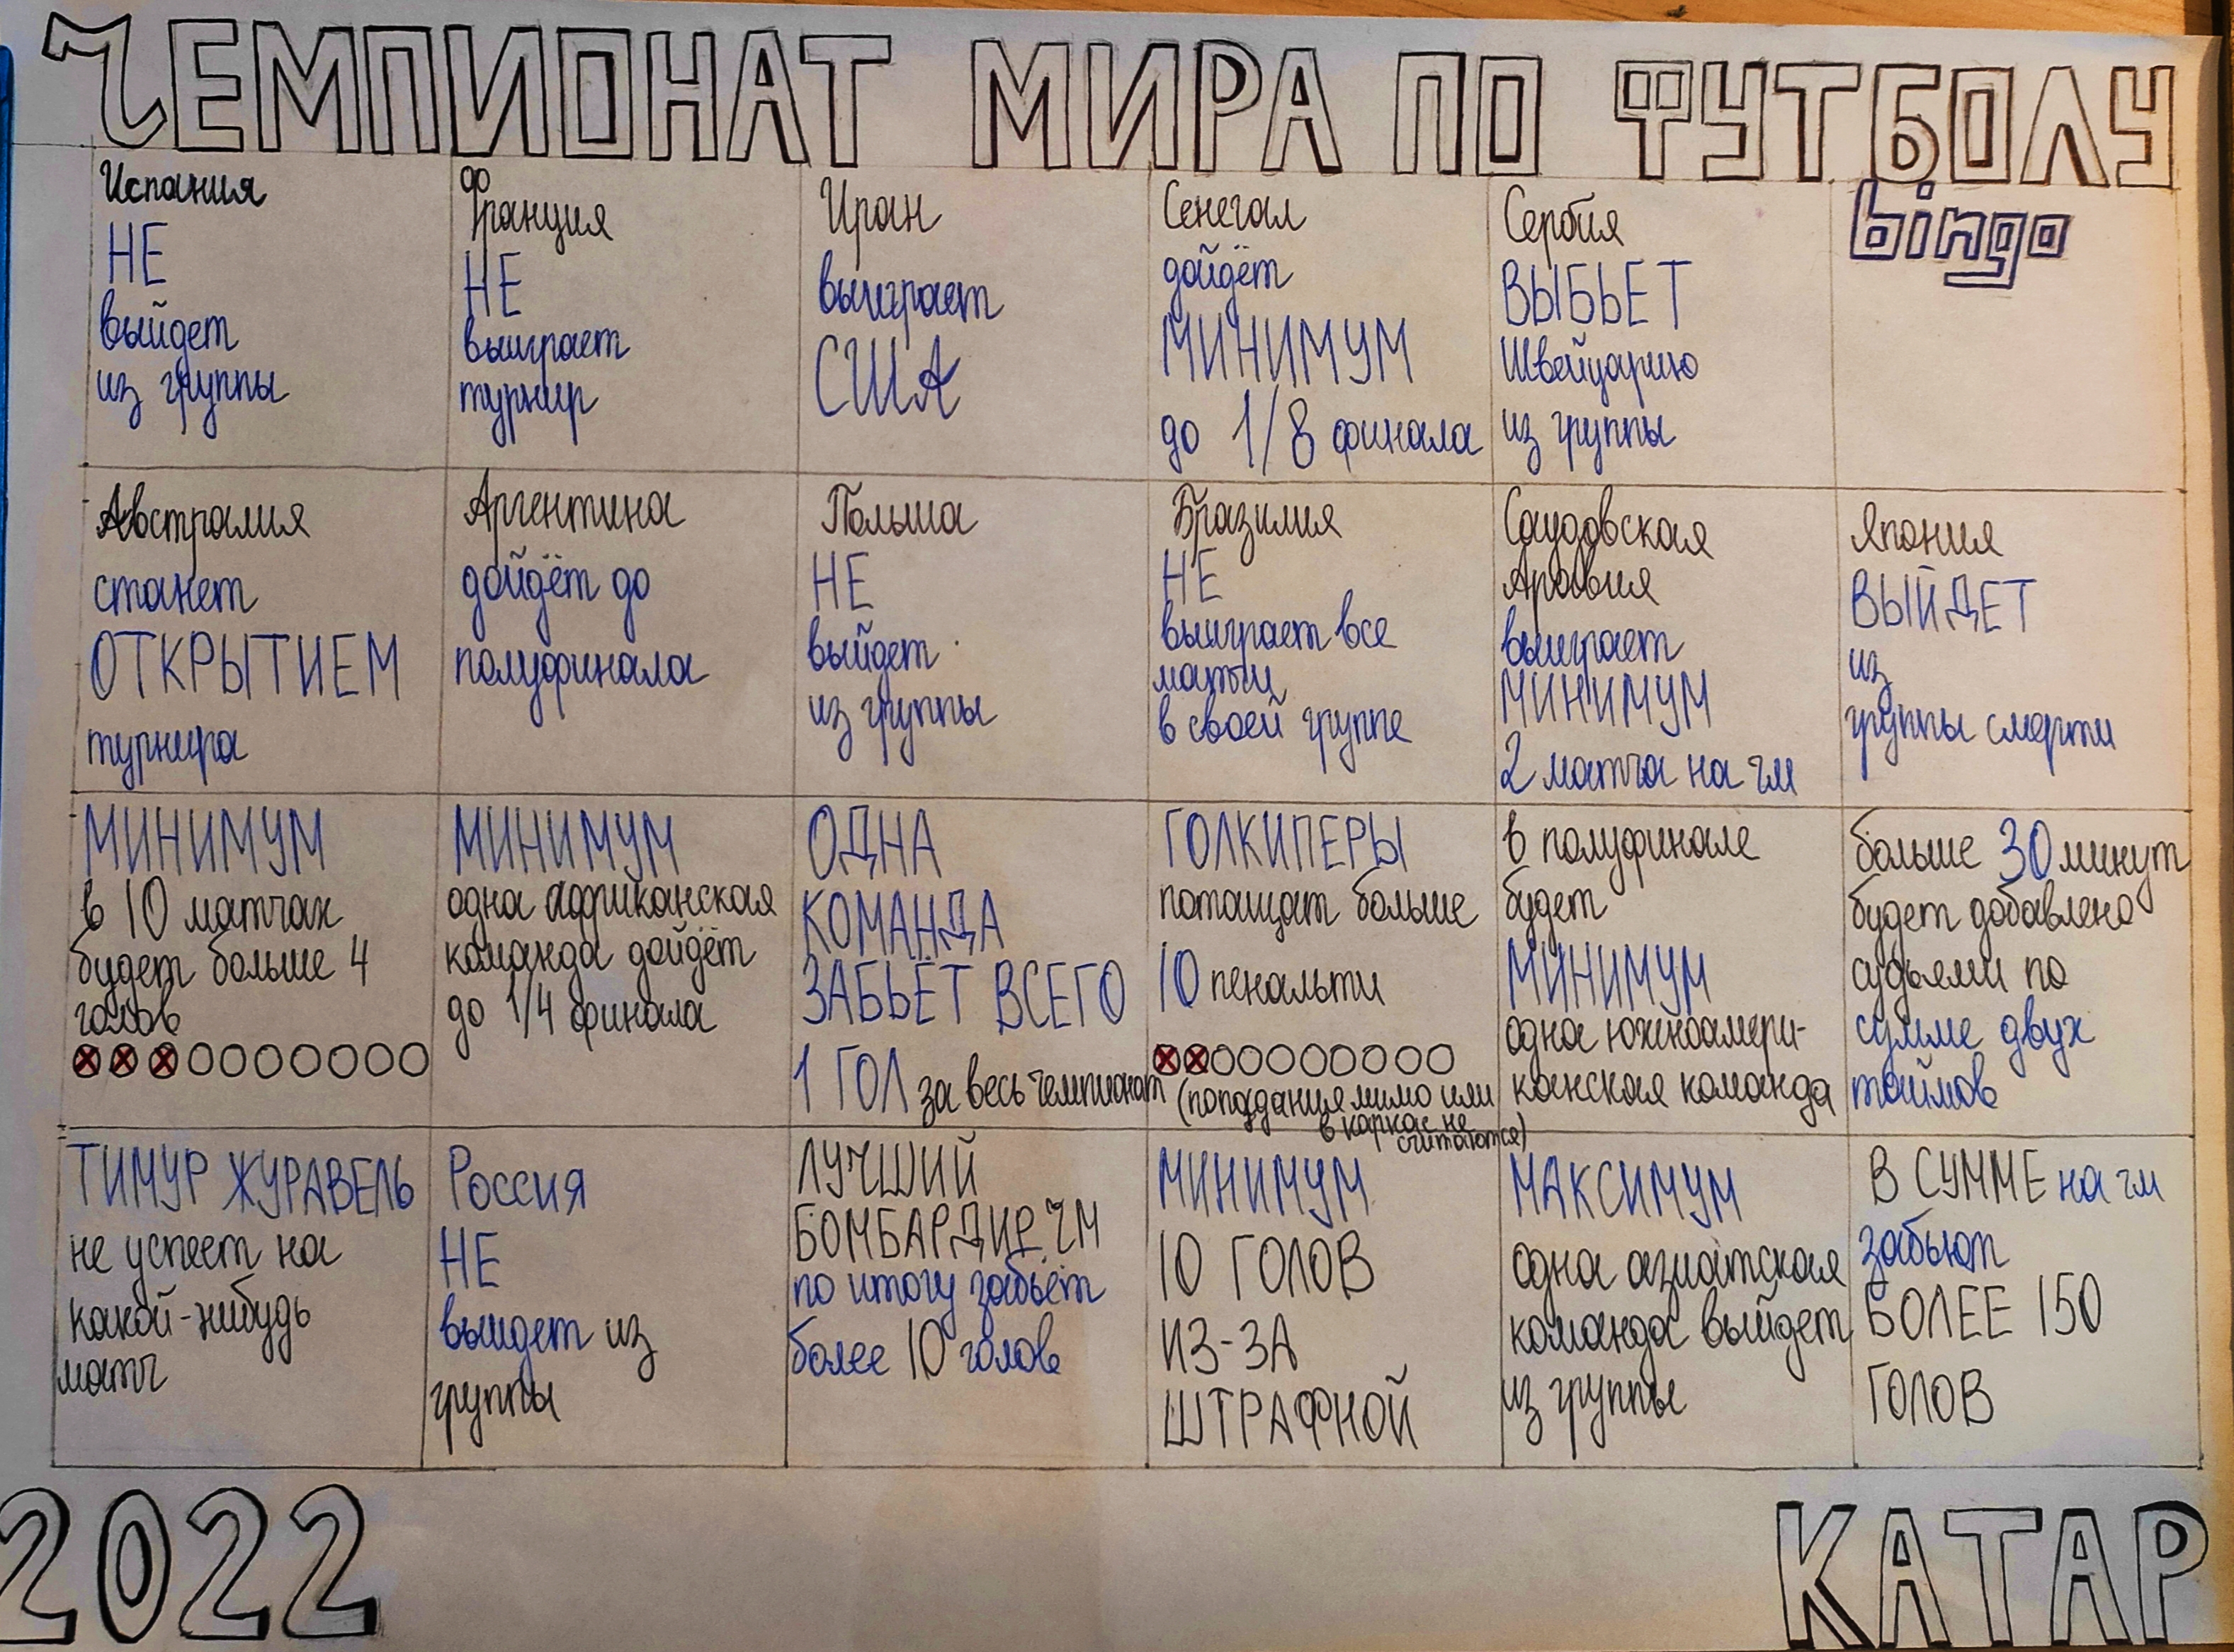 ЧЕМПИОНАТ МИРА ПО ФУТБОЛУ
bingo
Испания
НЕ
выйдет
из группы
Франция
НЕ
выиграет
турнир
Иран
выиграет
США
Сенегал
дойдёт
МИНИМУМ
до 1/8 финала
Сербия
ВЫБЬЕТ
Швейцарию
из группы
Австралия
станет
ОТКРЫТИЕМ
турнира
Аргентина
дойдёт до
полуфинала
Польша
НЕ
выйдет
из группы
Бразилия
НЕ
выиграет все
матчи
в своей группе
Саудовская
Аравия
выиграет
МИНИМУМ
2 матча на чм
Япония
ВЫЙДЕТ
из
группы смерти
МИНИМУМ
в 10 матчах
будет больше 4
голов
МИНИМУМ
одна африканская
команда дойдёт
до 1/4 финала
ОДНА
КОМАНДА
ЗАБЬЁТ ВСЕГО
1 ГОЛ за весь чемпионат
ГОЛКИПЕРЫ
потащат больше
10 пенальти
(попадания мимо или
в каркас не
считаются)
в полуфинале
будет
МИНИМУМ
одна южноамери-
канская команда
больше 30 минут
будет добавлено
судьями по
сумме двух
таймов
ТИМУР ЖУРАВЕЛЬ
не успеет на
какой-нибудь
матч
Россия
НЕ
выйдет из
группы
ЛУЧШИЙ
БОМБАРДИР ЧМ
по итогу забьёт
более 10 голов
МИНИМУМ
10 ГОЛОВ
ИЗ-ЗА
ШТРАФНОЙ
МАКСИМУМ
одна азиатская
команда выйдет
из группы
В СУММЕ на чм
забьют
БОЛЕЕ 150
ГОЛОВ
2022
КАТАР